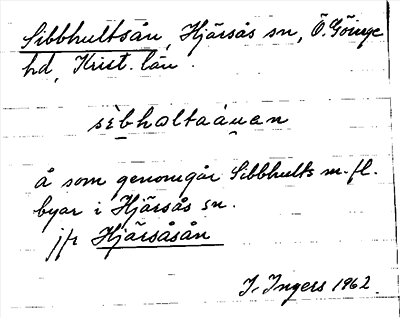 Sibbhultsån, Hjärsås sn, Ö. Göinge
hd, Krist. län.
sèbholtaánan
å som genomgår Sibbhults m. fl.
byar i Hjärsås sn.
jfr Hjärsåsån
I. Ingers 1962.